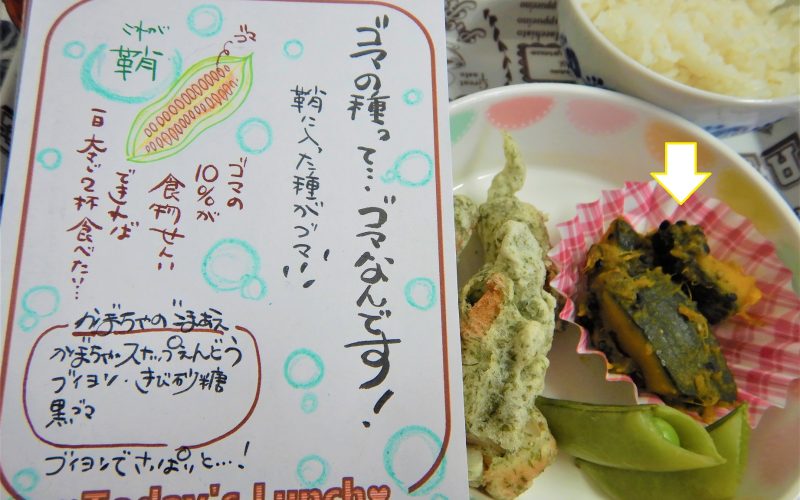 ゴマの種って…ゴマなんです!
鞘に入った種がゴマ!!
ゴマ
これが
鞘
ゴマの
10%が
食物せんい
できれば
一日 大さじ2杯 食べたい…
かぼちゃのごまあえ
かぼちゃ・スナップえんどう
ブイヨン・きび砂糖
黒ゴマ
ブイヨンでさっぱりと…!
Today's Lunch